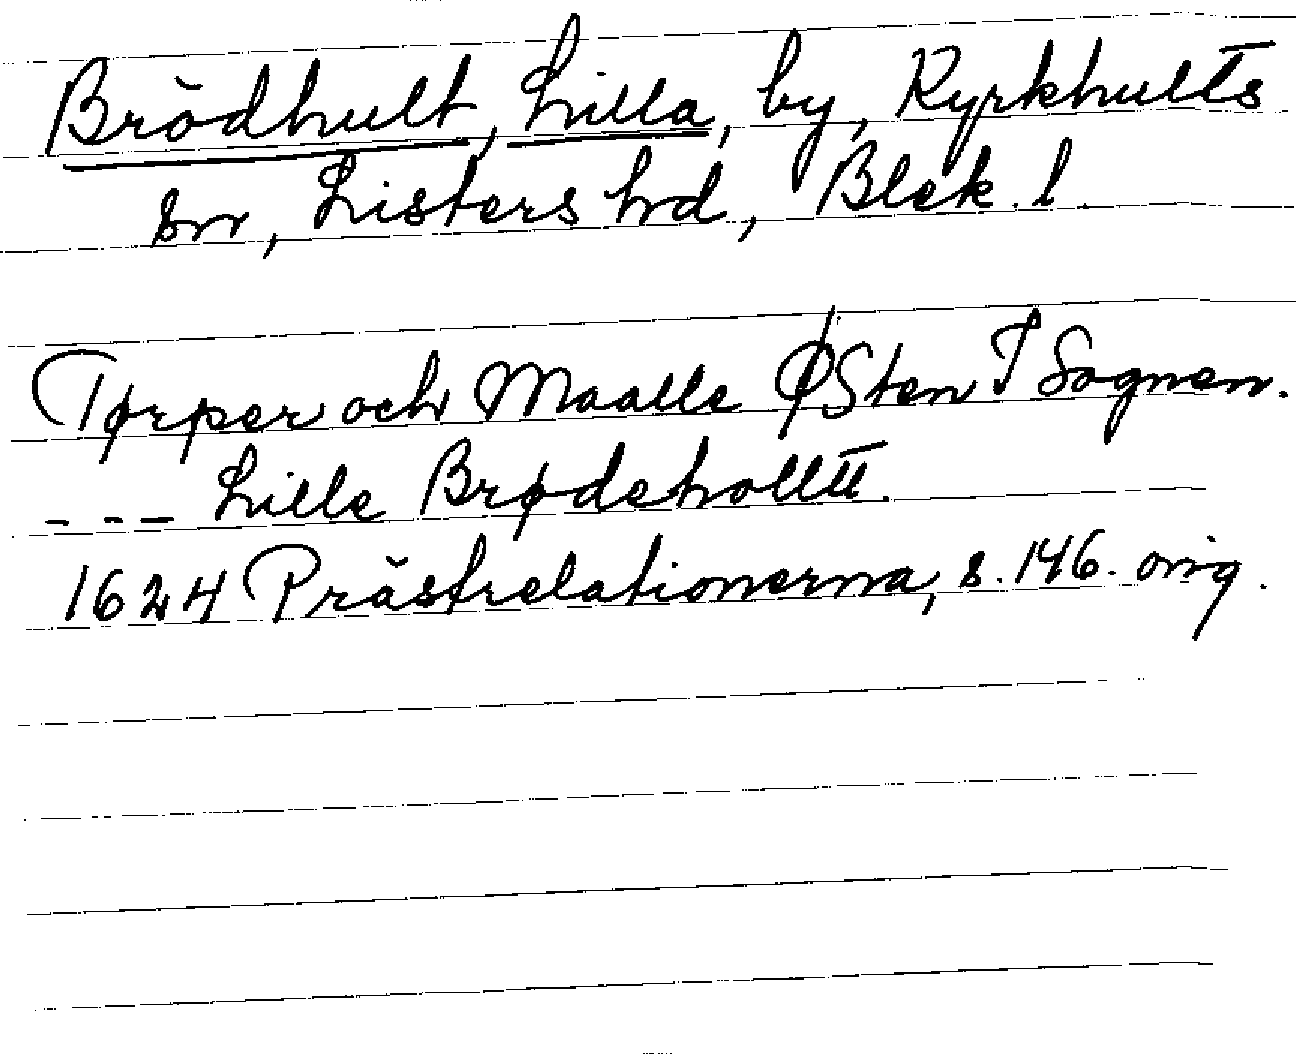 Brödhult, Lilla, by, Kyrkhults
sn, Listers hd, Blek. l.
Tørper och Maalle ØSten I Sognen.
--- Lille Brødeholltt.
1624 Prästrelationerna, s. 146. orig.